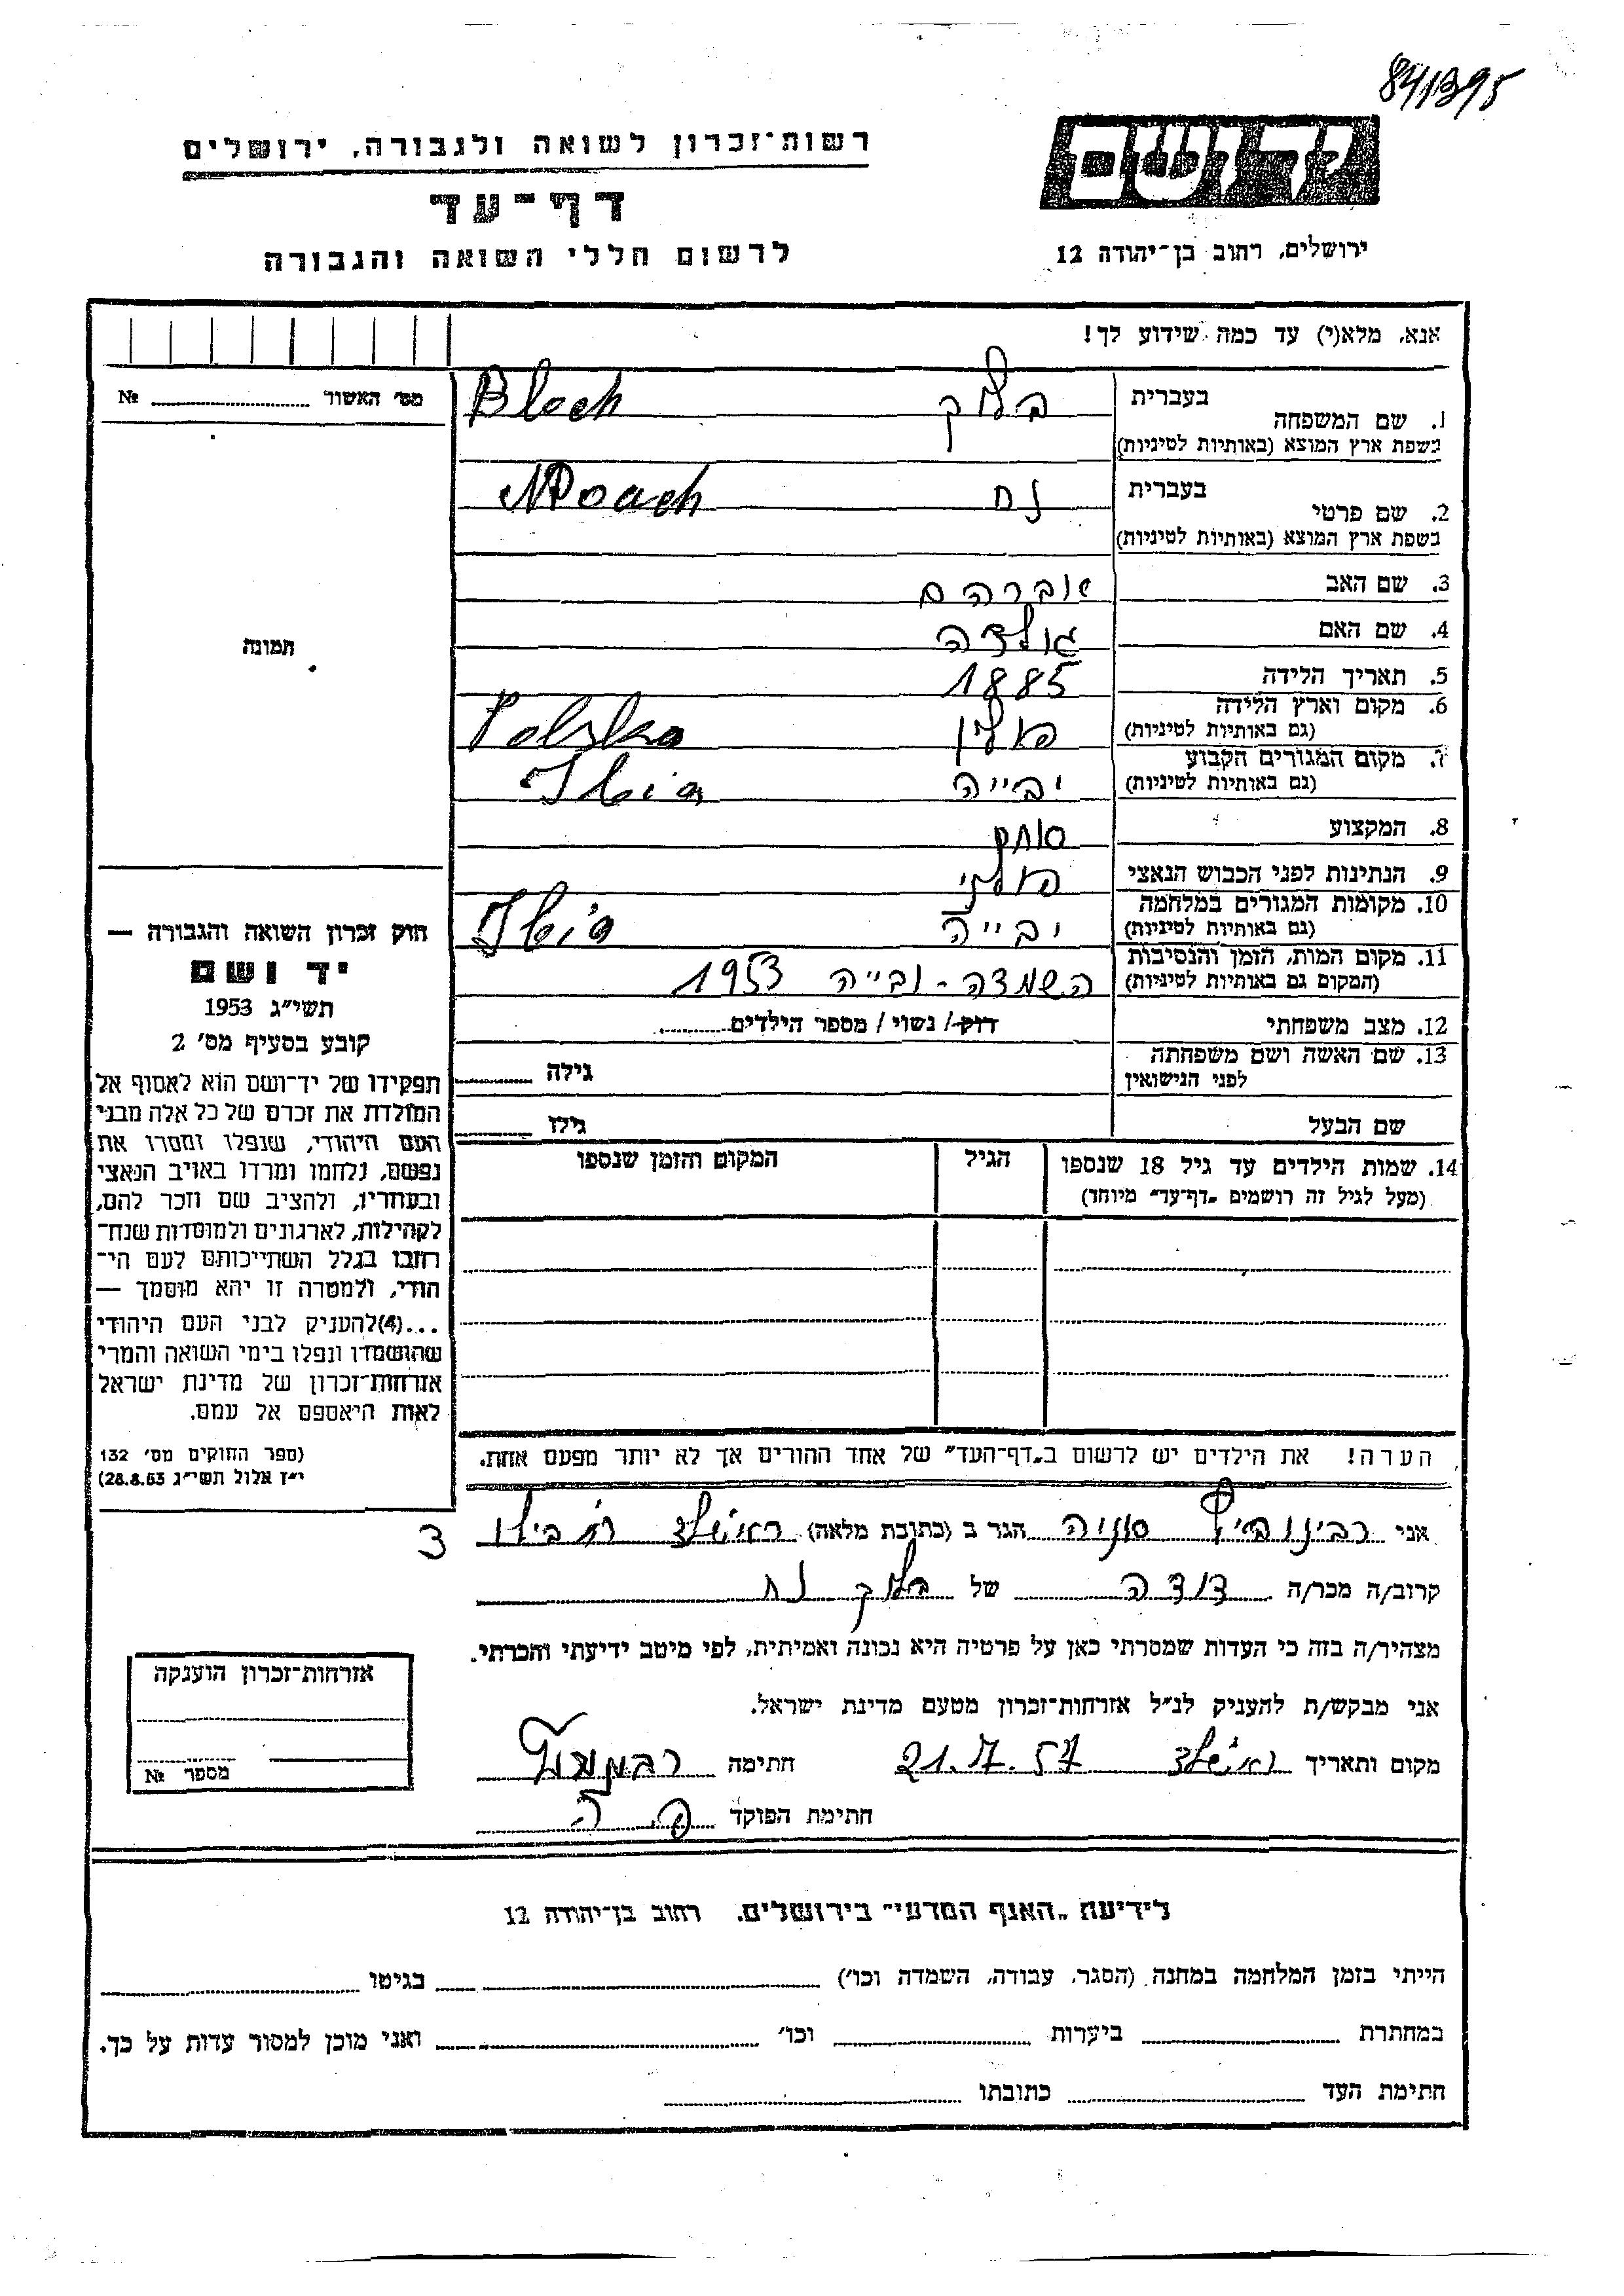 841395
רשות־זכרון לשואה ולגבורה, ירושלים
יד ושם
דף־עד
ירושלים, רחוב בן־יהודה 12
לרשום חללי השואה והגבורה
אנא, מלא(י) עד כמה שידוע לך!
מס׳ האשור №
תמונה
1. שם המשפחה בעברית בלוך Bloch
בשפת ארץ המוצא (באותיות לטיניות)
2. שם פרטי בעברית נח Noach
בשפת ארץ המוצא (באותיות לטיניות)
3. שם האב אברהם
4. שם האם גולדה
5. תאריך הלידה 1885
6. מקום וארץ הלידה פולין Polska
(גם באותיות לטיניות)
7. מקום המגורים הקבוע יבייה
(גם באותיות לטיניות)
8. המקצוע סוחר
9. הנתינות לפני הכבוש הנאצי פולני
10. מקומות המגורים במלחמה יבייה
(גם באותיות לטיניות)
11. מקום המות, הזמן והנסיבות השמדה - ובייה 1953
(המקום גם באותיות לטיניות)
12. מצב משפחתי רוק / נשוי / מספר הילדים
13. שם האשה ושם משפחתה גילה
לפני הנישואין
שם הבעל גילו
14. שמות הילדים עד גיל 18 שנספו הגיל המקום והזמן שנספו
(מעל לגיל זה רושמים „דף־עד״ מיוחד)
חוק זכרון השואה והגבורה —
יד ושם
תשי״ג 1953
קובע בסעיף מס׳ 2
תפקידו של יד־ושם הוא לאסוף אל
המולדת את זכרם של כל אלה מבני
העם היהודי, שנפלו ומסרו את
נפשם, נלחמו ומרדו באויב הנאצי
ובעוזריו, ולהציב שם וזכר להם,
לקהילות, לארגונים ולמוסדות שנח־
רחבו בגלל השתייכותם לעם הי־
הודי, ולמטרה זו יהא מוסמך —
...(4)להעניק לבני העם היהודי
שהושמדו ונפלו בימי השואה והמרי
אזרחות־זכרון של מדינת ישראל
לאות היאספם אל עמם.
(ספר החוקים מס׳ 132
י״ז אלול תשי״ג 28.8.53)
הערה! את הילדים יש לרשום ב„דף־העד״ של אחד ההורים אך לא יותר מפעם אחת.
אני רבינוביץ סוניה הגר ב (כתובת מלאה) ראשלצ 3
קרוב/ה מכר/ה דודה של בלוך נח
מצהיר/ה בזה כי העדות שמסרתי כאן על פרטיה היא נכונה ואמיתית, לפי מיטב ידיעתי והכרתי.
אני מבקש/ת להעניק לנ״ל אזרחות־זכרון מטעם מדינת ישראל.
מקום ותאריך ראשלצ 21.7.57 חתימה
חתימת הפוקד
אזרחות־זכרון הוענקה
מספר №
לידיעת „האגף המדעי״ בירושלים, רחוב בן־יהודה 12
הייתי בזמן המלחמה במחנה (הסגר, עבודה, השמדה וכו׳) בגיטו
במחתרת ביערות וכו׳ ואני מוכן למסור עדות על כך.
חתימת העד כתובתו